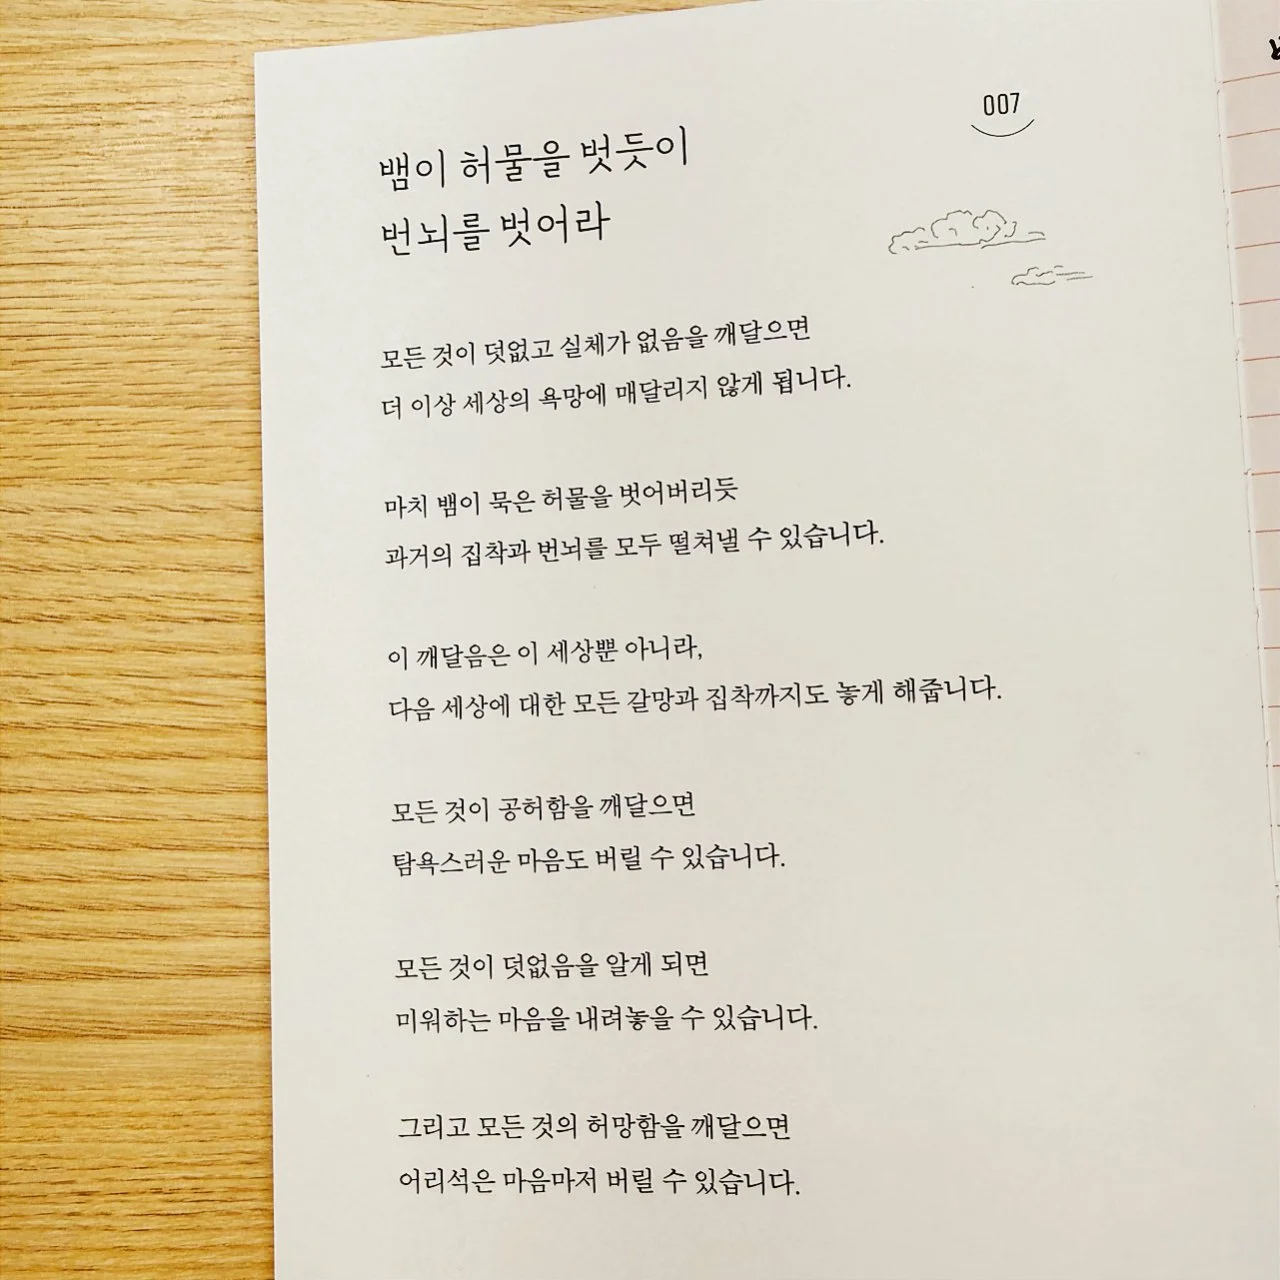 007
뱀이 허물을 벗듯이
번뇌를 벗어라
모든 것이 덧없고 실체가 없음을 깨달으면
더 이상 세상의 욕망에 매달리지 않게 됩니다.
마치 뱀이 묵은 허물을 벗어버리듯
과거의 집착과 번뇌를 모두 떨쳐낼 수 있습니다.
이 깨달음은 이 세상뿐 아니라,
다음 세상에 대한 모든 갈망과 집착까지도 놓게 해줍니다.
모든 것이 공허함을 깨달으면
탐욕스러운 마음도 버릴 수 있습니다.
모든 것이 덧없음을 알게 되면
미워하는 마음을 내려놓을 수 있습니다.
그리고 모든 것의 허망함을 깨달으면
어리석은 마음마저 버릴 수 있습니다.